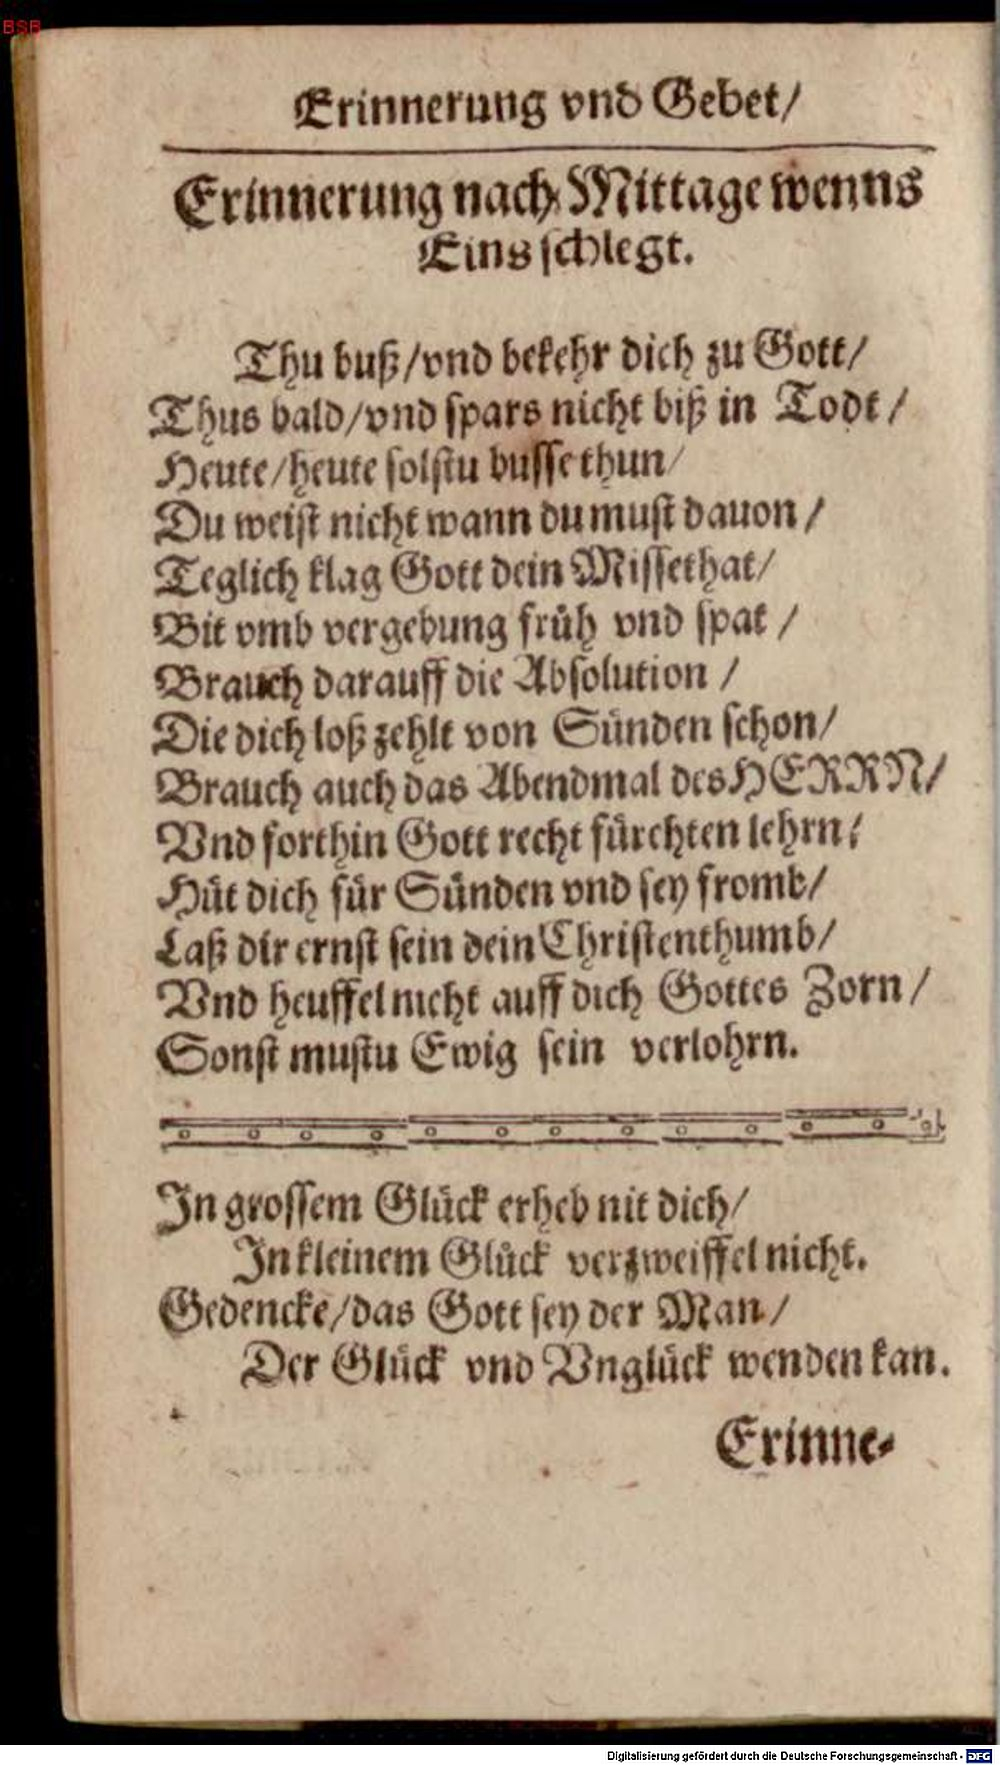 BSB
Erinnerung vnd Gebet/
Erinnerung nach Mittage wenns
Eins schlegt.
Thu buß/vnd bekehr dich zu Gott/
Thus bald/vnd spars nicht biß in Todt/
Heute/heute solstu busse thun/
Du weist nicht wann du must dauon/
Teglich klag Gott dein Missethat/
Bit vmb vergebung früh vnd spat/
Brauch darauff die Absolution/
Die dich loß zehlt von Sünden schon/
Brauch auch das Abendmal des HERRN/
Vnd forthin Gott recht fürchten lehrn/
Hüt dich für Sünden vnd sey fromb/
Laß dir ernst sein dein Christenthumb/
Vnd heuffel nicht auff dich Gottes Zorn/
Sonst mustu Ewig sein verlohrn.
In grossem Glück erheb nit dich/
In kleinem Glück verzweiffel nicht.
Gedencke/das Gott sey der Man/
Der Glück vnd Vnglück wenden kan.
Erinne-
Digitalisierung gefördert durch die Deutsche Forschungsgemeinschaft - DFG